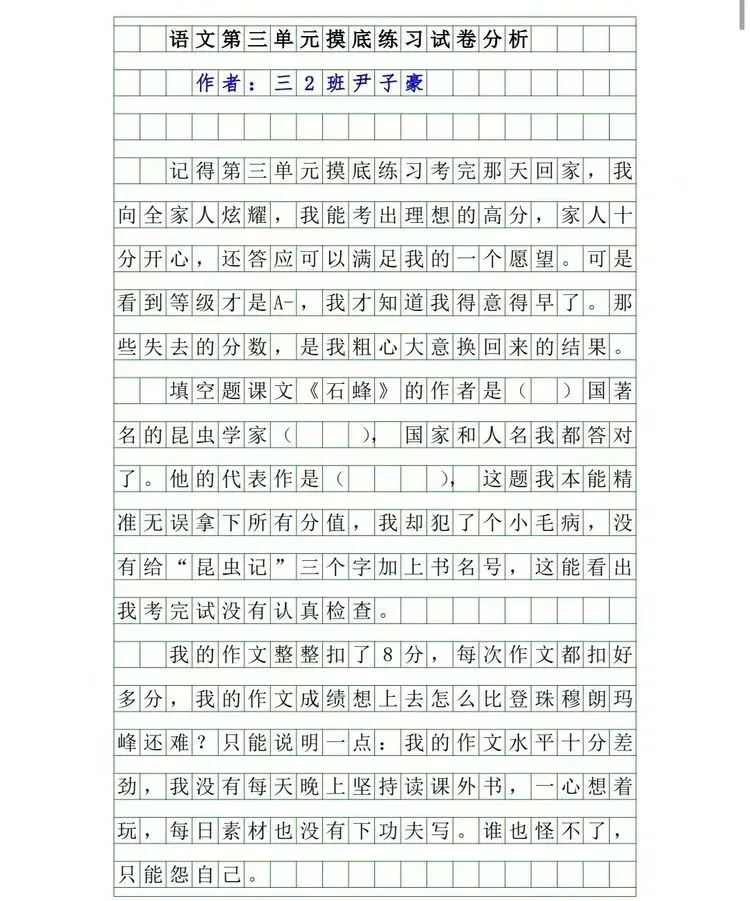 语文第三单元摸底练习试卷分析
作者：三2班尹子豪
记得第三单元摸底练习考完那天回家，我
向全家人炫耀，我能考出理想的高分，家人十
分开心，还答应可以满足我的一个愿望。可是
看到等级才是A-，我才知道我得意得早了。那
些失去的分数，是我粗心大意换回来的结果。
填空题课文《石蜂》的作者是（ ）国著
名的昆虫学家（ ），国家和人名我都答对
了。他的代表作是（ ），这题我本能精
准无误拿下所有分值，我却犯了个小毛病，没
有给“昆虫记”三个字加上书名号，这能看出
我考完试没有认真检查。
我的作文整整扣了8分，每次作文都扣好
多分，我的作文成绩想上去怎么比登珠穆朗玛
峰还难？只能说明一点：我的作文水平十分差
劲，我没有每天晚上坚持读课外书，一心想着
玩，每日素材也没有下功夫写。谁也怪不了，
只能怨自己。